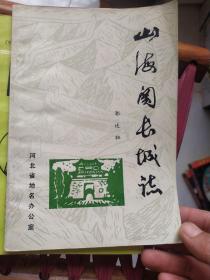 山海关长城志
河北省地名办公室